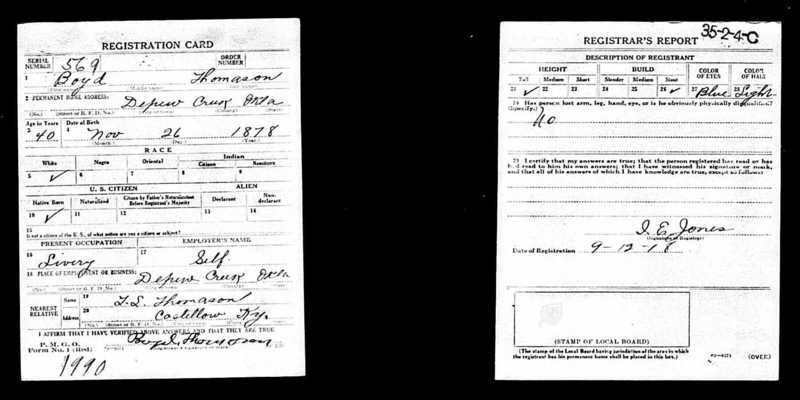 REGISTRATION CARD
SERIAL NUMBER 569 ORDER NUMBER
1 Boyd Thomason
2 PERMANENT HOME ADDRESS:
Depew Creek Okla
(No.) (Street or R. F. D. No.)
Age in Years Date of Birth
3 40 4 Nov 26 1878
(Month) (Day) (Year)
RACE
White Negro Oriental Indian
Citizen Noncitizen
5 ✓ 6 7 8 9
U. S. CITIZEN ALIEN
Native Born Naturalized Citizen by Father's Naturalization Before Registrant's Majority Declarant Non-declarant
10 ✓ 11 12 13 14
15
If not a citizen of the U. S., of what nation are you a citizen or subject?
PRESENT OCCUPATION EMPLOYER'S NAME
16 Livery 17 Self
18 PLACE OF EMPLOYMENT OR BUSINESS:
Depew Creek Okla
(No.) (Street or R. F. D. No.)
NEAREST RELATIVE Name 19 Thomason
Address 20 Ky.
(No.) (Street or R. F. D. No.)
I AFFIRM THAT I HAVE VERIFIED ABOVE ANSWERS AND THAT THEY ARE TRUE
P. M. G. O.
Form No. 1 (Red) Boyd Thomason
1990
35-2-4-C
REGISTRAR'S REPORT
DESCRIPTION OF REGISTRANT
HEIGHT BUILD COLOR OF EYES COLOR OF HAIR
Tall Medium Short Slender Medium Stout
21 ✓ 22 23 24 25 26 ✓ 27 Blue 28 Light
29 Has person lost arm, leg, hand, eye, or is he obviously physically disqualified?
(Specify.) No
30 I certify that my answers are true; that the person registered has read or has had read to him his own answers; that I have witnessed his signature or mark, and that all of his answers of which I have knowledge are true, except as follows:
I. E. Jones
(Signature of Registrar)
Date of Registration 9-12-18
(STAMP OF LOCAL BOARD)
(The stamp of the Local Board having jurisdiction of the area in which the registrant has his permanent home shall be placed in this box.)
(OVER)